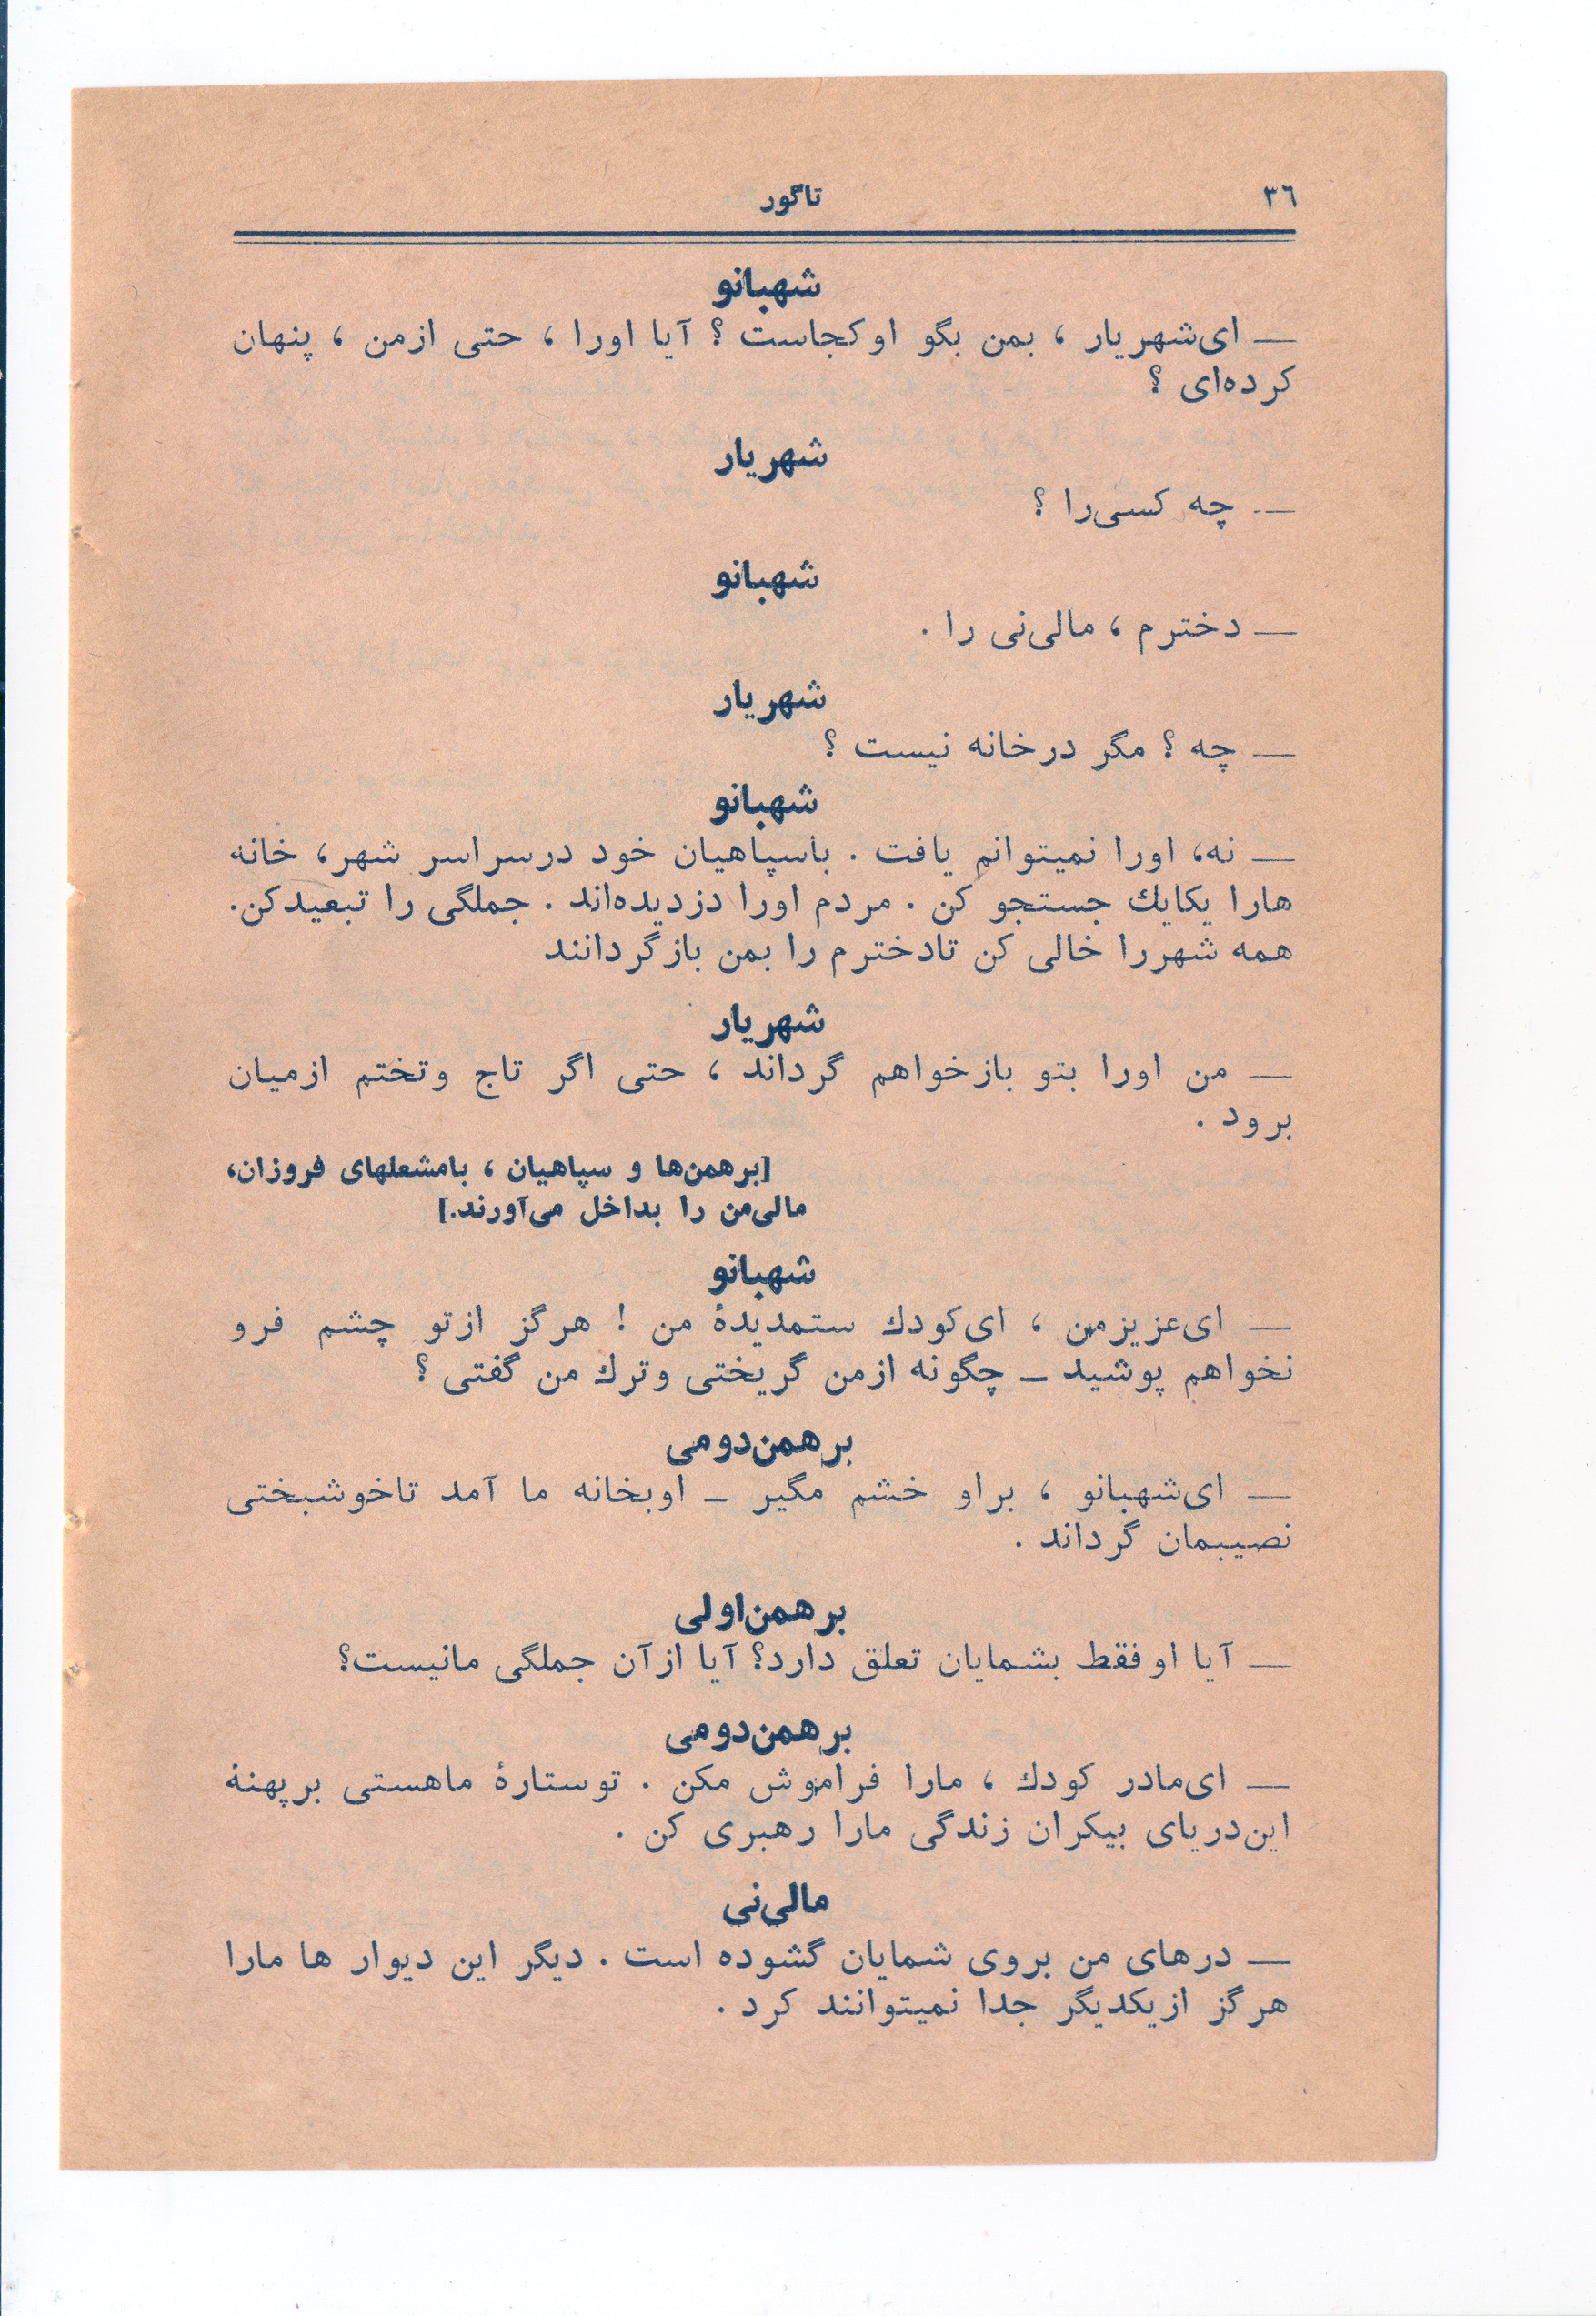 ۳۶
تاگور
شهبانو
— ای‌شهریار ، بمن بگو اوکجاست ؟ آیا اورا ، حتی ازمن ، پنهان
کرده‌ای ؟
شهریار
— چه کسی‌را ؟
شهبانو
— دخترم ، مالی‌نی را .
شهریار
— چه ؟ مگر درخانه نیست ؟
شهبانو
— نه، اورا نمیتوانم یافت . باسپاهیان خود درسراسر شهر، خانه
هارا یکایك جستجو کن . مردم اورا دزدیده‌اند . جملگی را تبعیدکن.
همه شهررا خالی کن تادخترم را بمن بازگردانند
شهریار
— من اورا بتو بازخواهم گرداند ، حتی اگر تاج وتختم ازمیان
برود .
[برهمن‌ها و سپاهیان ، بامشعلهای فروزان،
مالی‌من را بداخل می‌آورند.]
شهبانو
— ای‌عزیزمن ، ای‌کودك ستمدیدۀ من ! هرگز ازتو چشم فرو
نخواهم پوشید — چگونه ازمن گریختی وترك من گفتی ؟
برهمن‌دومی
— ای‌شهبانو ، براو خشم مگیر — اوبخانه ما آمد تاخوشبختی
نصیبمان گرداند .
برهمن‌اولی
— آیا اوفقط بشمایان تعلق دارد؟ آیا ازآن جملگی مانیست؟
برهمن‌دومی
— ای‌مادر کودك ، مارا فراموش مکن . توستارۀ ماهستی برپهنۀ
این‌دریای بیکران زندگی مارا رهبری کن .
مالی‌نی
— درهای من بروی شمایان گشوده است . دیگر این دیوار ها مارا
هرگز ازیکدیگر جدا نمیتوانند کرد .